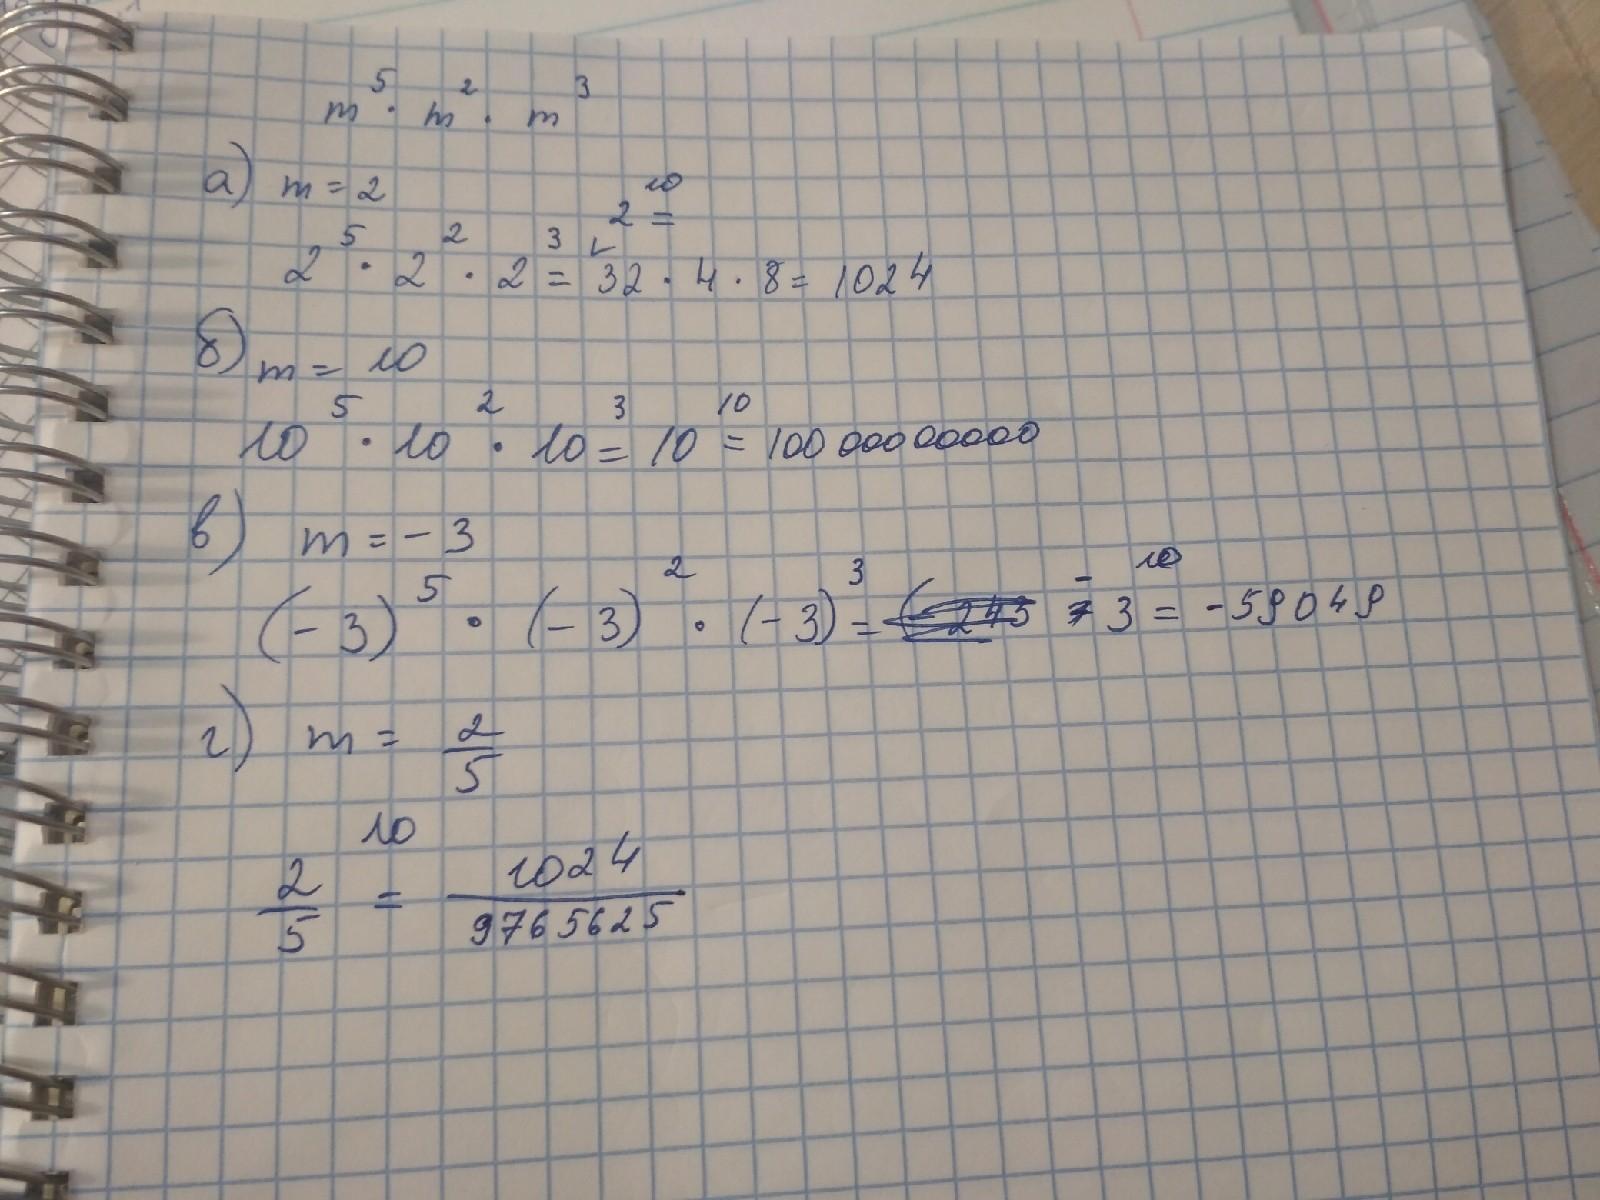 m⁵ · m² · m³
а) m = 2
2¹⁰ =
2⁵ · 2² · 2³ = 32 · 4 · 8 = 1024
б) m = 10
10⁵ · 10² · 10³ = 10¹⁰ = 10000000000
в) m = - 3
(-3)⁵ · (-3)² · (-3)³ = - 3¹⁰ = -59049
г) m = 2/5
2/5¹⁰ = 1024/9765625